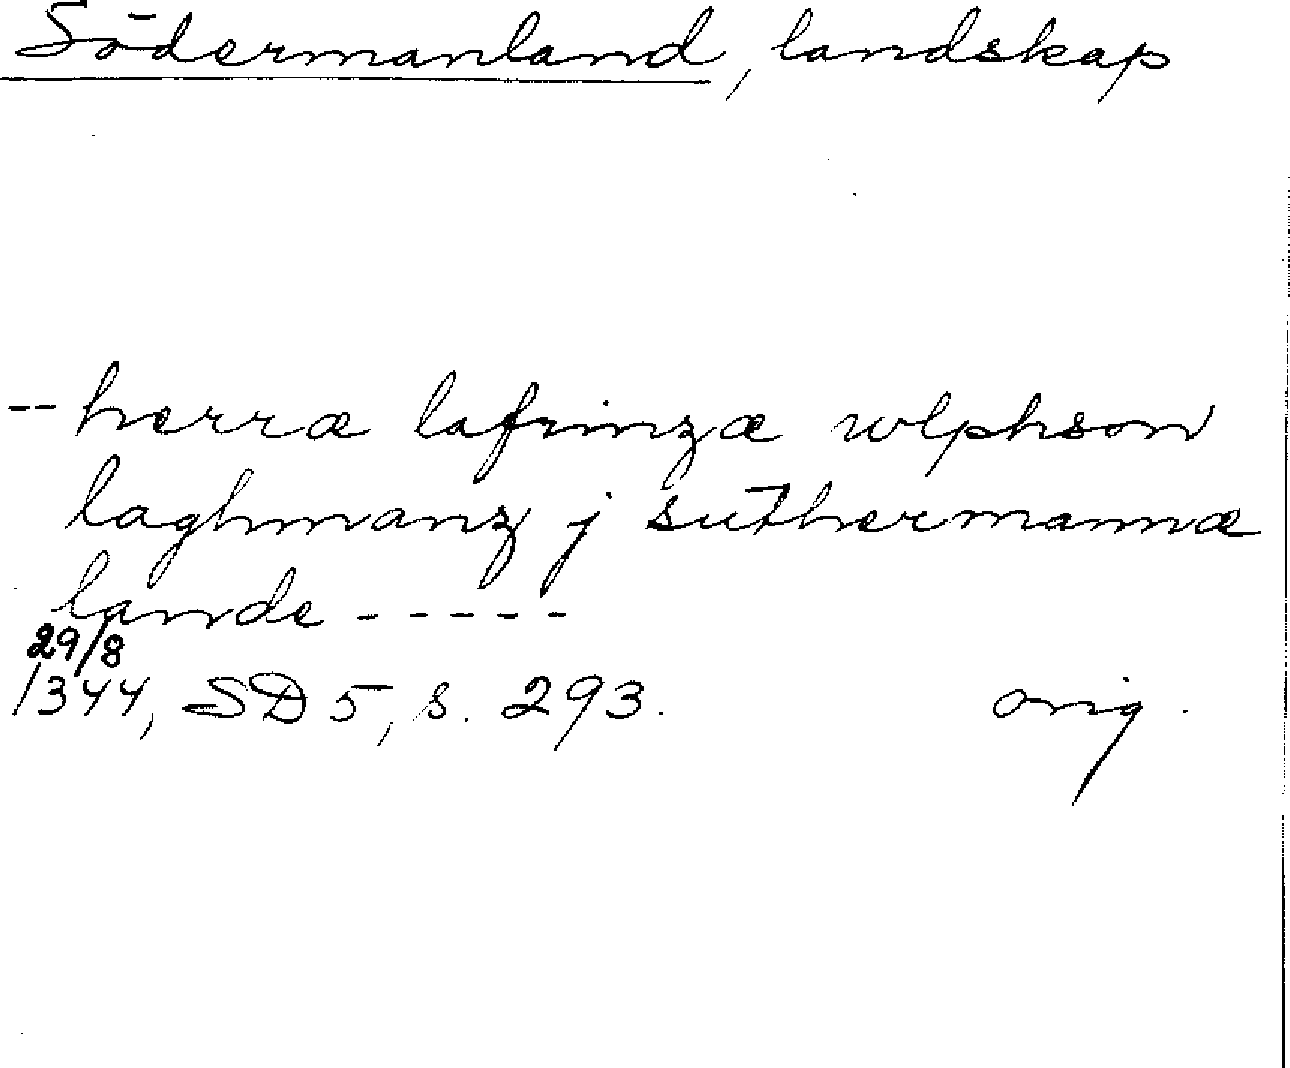 Södermanland, landskap
-- herræ lafrinzæ wlphson
laghmanz j suthermannæ
lande -----
29/8
1344, SD 5, s. 293. orig.